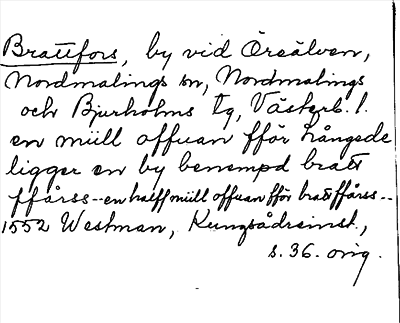 Brattfors, by vid Öreälven,
Nordmalings sn, Nordmalings
och Bjurholms tg, Västerb. l.
en miill offuan fför Långede
ligger en by benempd bratt
ffårss -- en halff miill offuan fför bratffårss --
1552 Westman, Kungsådreinst.,
s. 36. orig.